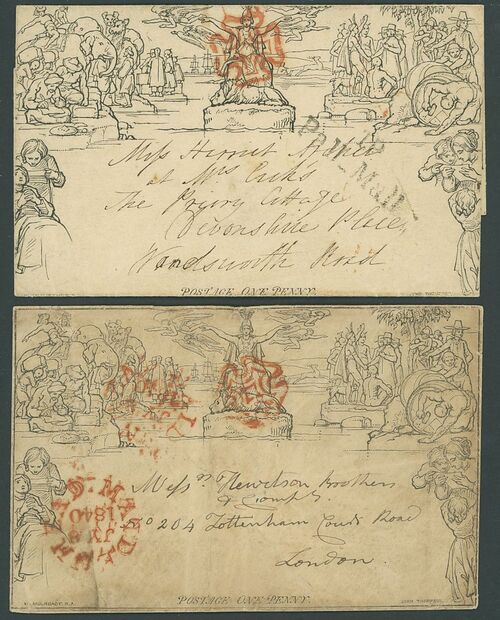 Pall
Mall
Miss Harriet
at Mrs
The Priory Cottage
Devonshire Place,
Wandsworth Road
POSTAGE ONE PENNY.
JOHN THOMPSON
Messrs Hewetson Brothers
& Compy.
No 204 Tottenham Court Road
London.
1840
W. MULREADY. R.A.
POSTAGE ONE PENNY.
JOHN THOMPSON